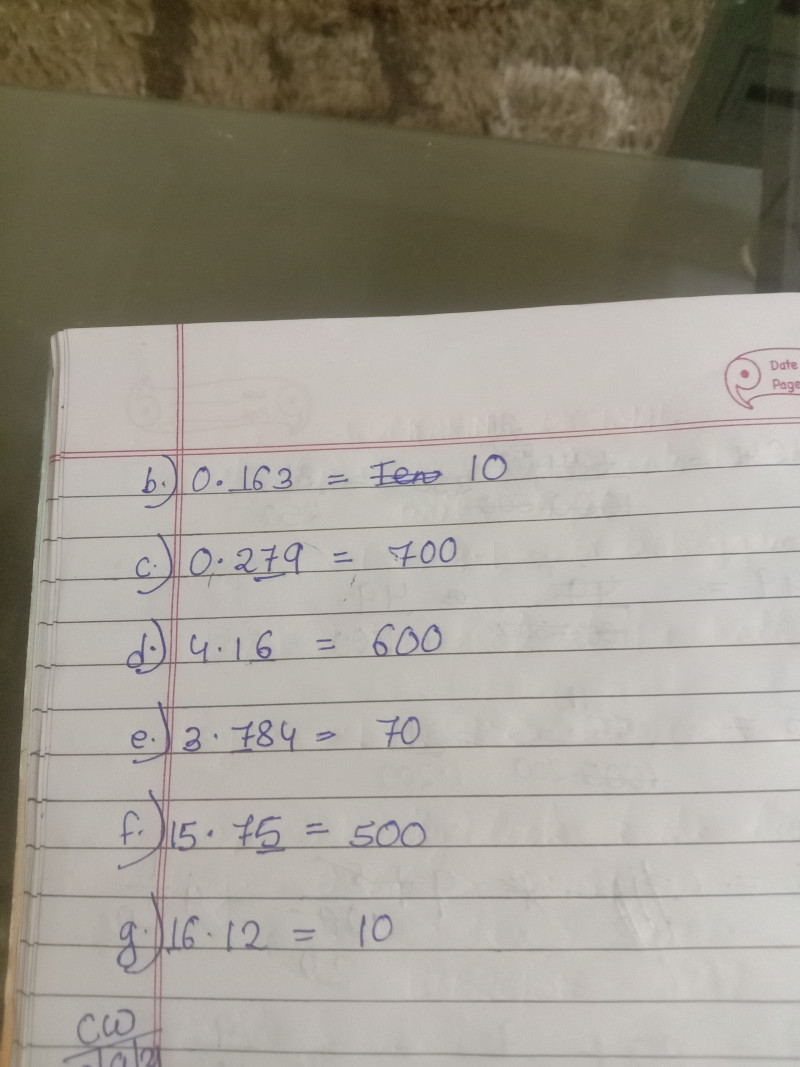 Date
Page
b.) 0.163 = 10
c.) 0.279 = 700
d.) 4.16 = 600
e.) 3.784 = 70
f.) 15.75 = 500
g.) 16.12 = 10
CW